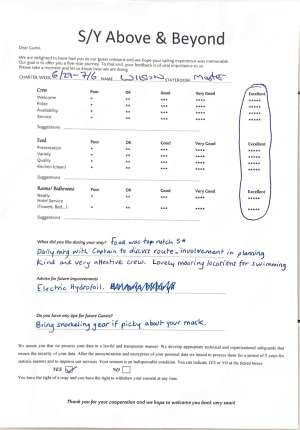 S/Y Above & Beyond
Dear Guest,
We are delighted to have had you as our guest onboard and hope your sailing experience was memorable.
Our goal is to offer you a five-star journey. To that end, your feedback is of vital importance to us.
Please take a moment and let us know how we are doing.
CHARTER WEEK 6/29-7/6 NAME WILSON STATEROOM Master
Crew Poor OK Good Very Good Excellent
Welcome * ** *** **** *****
Polite * ** *** **** *****
Availability * ** *** **** *****
Service * ** *** **** *****
Suggestions
Food Poor OK Good Very Good Excellent
Presentation * ** *** **** *****
Variety * ** *** **** *****
Quality * ** *** **** *****
Kitchen (clean) * ** *** **** *****
Suggestions
Rooms/ Bathrooms Poor OK Good Very Good Excellent
Neatly * ** *** **** *****
Hotel Service
(Towels, Bed...) * ** *** **** *****
Suggestions
What did you like during your stay? Food was top notch 5*
Daily mtg with Captain to discuss route - involvement in planning
Kind and very attentive crew. Lovely mooring locations for swimming
Advice for future improvements
Electric Hydrofoil.
Do you have any tips for future Guests?
Bring snorkeling gear if picky about your mask.
We assure you that we process your data in a lawful and transparent manner. We develop appropriate technical and organizational safeguards that
ensure the security of your data. After the anonymization and encryption of your personal data we intend to process them for a period of 5 years for
statistic matters and to improve our services. Your consent is an indispensable condition. You can indicate YES or NO at the ticked boxes
YES NO
You have the right of a copy and you have the right to withdraw your consent at any time.
Thank you for your cooperation and we hope to welcome you back very soon!